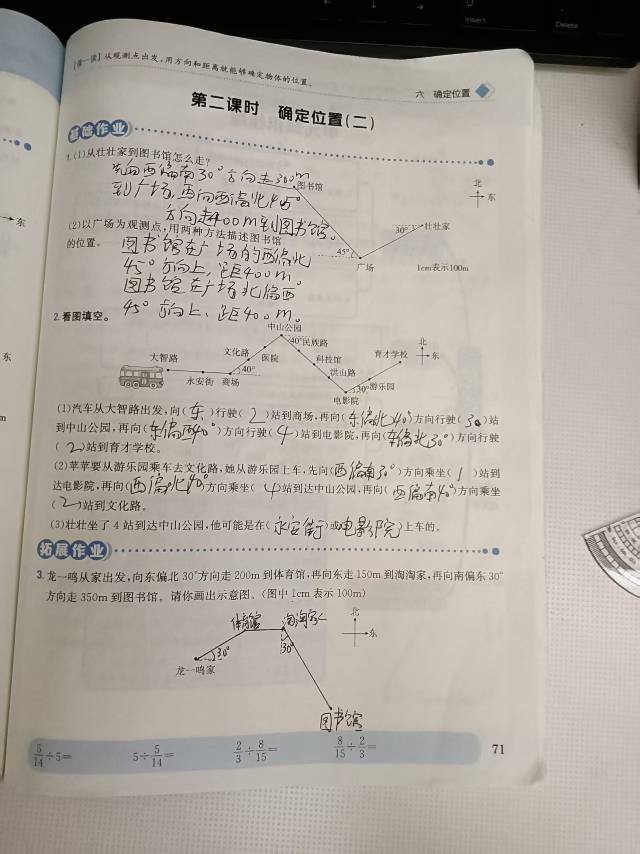 [读一读] 从观测点出发,用方向和距离就能够确定物体的位置。
六 确定位置
第二课时 确定位置(二)
基础作业
1.(1)从壮壮家到图书馆怎么走?
先向西偏南30°方向走300m
到广场,再向西偏北45°
方向走400m到图书馆。
图书馆
北
东
30°
壮壮家
45°
广场
1cm表示100m
(2)以广场为观测点,用两种方法描述图书馆
的位置。图书馆在广场的西偏北
45°方向上,距400m。
图书馆在广场北偏西
45°方向上、距400m。
2.看图填空。
中山公园
40°民族路
大智路
文化路
医院
科技馆
育才学校
北
东
永安街
商场
40°
洪山路
30°游乐园
电影院
(1)汽车从大智路出发,向(东)行驶(2)站到商场,再向(东偏北40°)方向行驶(3)站
到中山公园,再向(东偏西40°)方向行驶(4)站到电影院,再向(东偏北30°)方向行驶
(2)站到育才学校。
(2)苹苹要从游乐园乘车去文化路,她从游乐园上车,先向(西偏南30°)方向乘坐(1)站到
达电影院,再向(西偏北40°)方向乘坐(4)站到达中山公园,再向(西偏南40°)方向乘坐
(2)站到文化路。
(3)壮壮坐了4站到达中山公园,他可能是在(永安街)或(电影院)上车的。
拓展作业
3.龙一鸣从家出发,向东偏北30°方向走200m到体育馆,再向东走150m到淘淘家,再向南偏东30°
方向走350m到图书馆。请你画出示意图。(图中1cm表示100m)
体育馆
淘淘家
北
东
30°
30°
龙一鸣家
图书馆
5/14÷5=
5÷5/14=
2/3÷8/15=
8/15÷2/3=
71
东
东
m
Insert
Delete